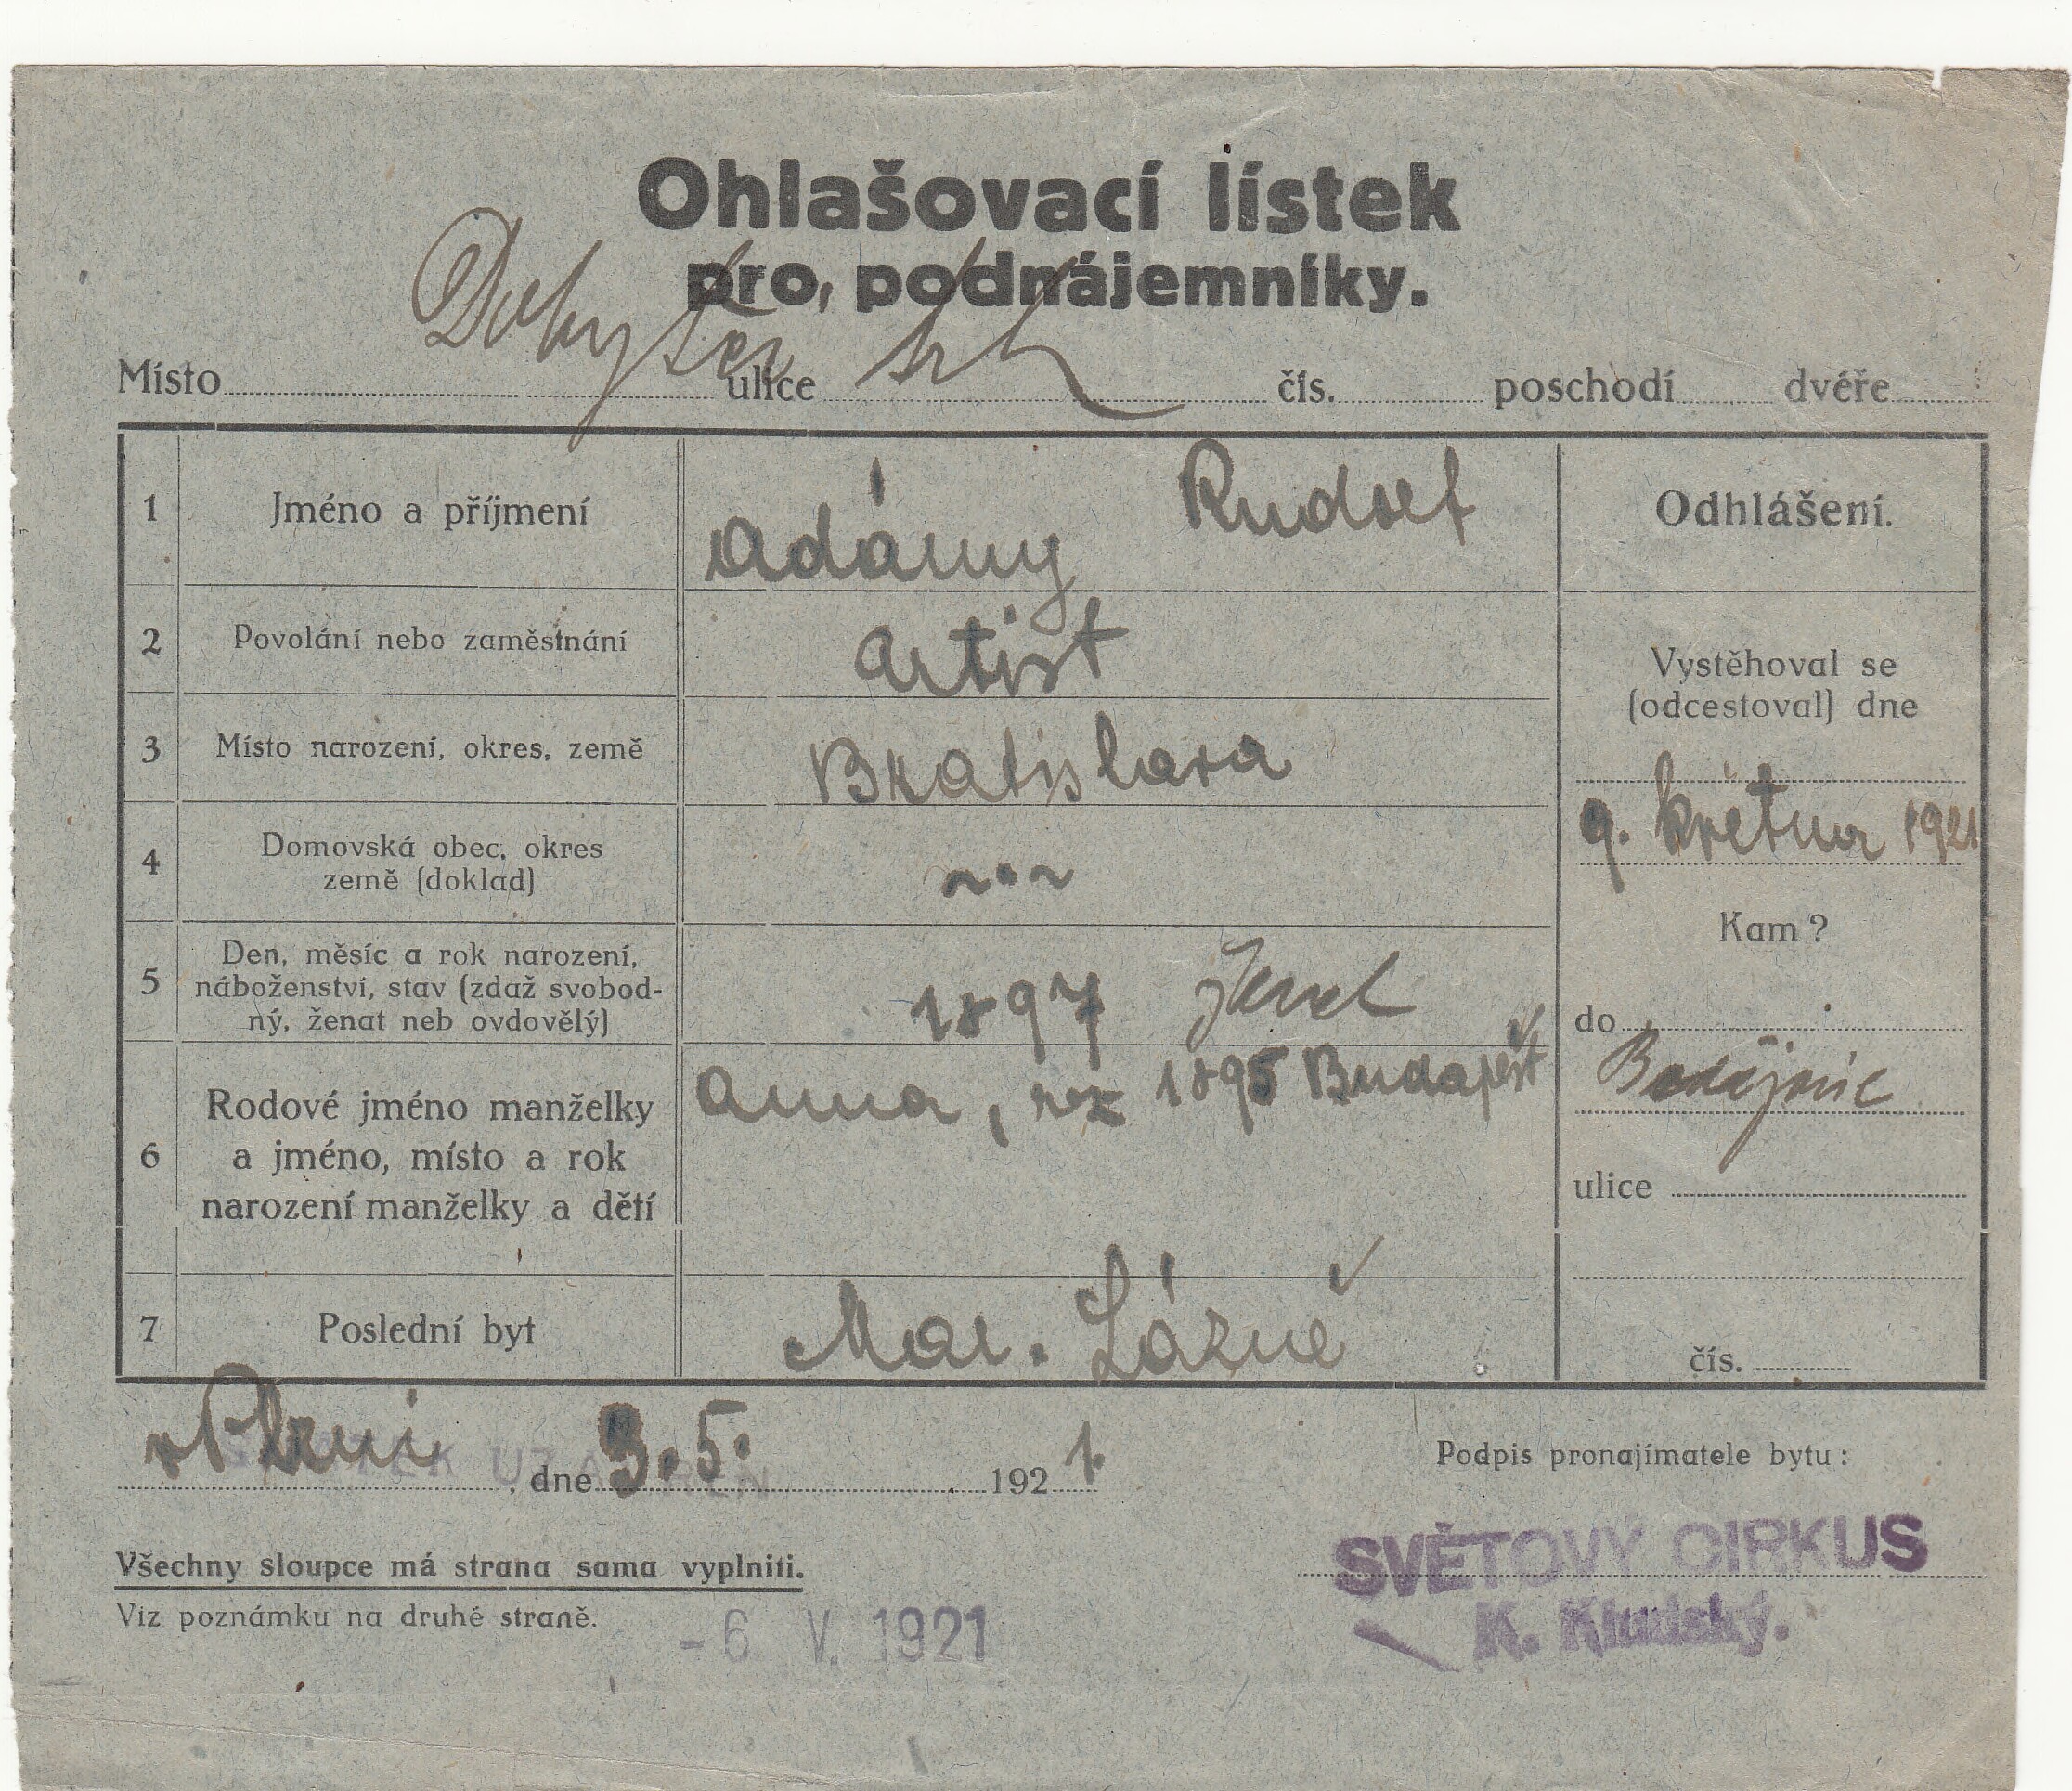 Ohlašovací lístek
pro podnájemníky.
Místo ulice čís. poschodí dvéře
1 Jméno a příjmení Adámy Rudolf Odhlášení.
2 Povolání nebo zaměstnání Artist
Vystěhoval se
(odcestoval) dne
3 Místo narození, okres, země Bratislava
9. května 1921
4 Domovská obec, okres
země (doklad)
Kam?
5 Den, měsíc a rok narození,
náboženství, stav (zdaž svobod-
ný, ženat neb ovdovělý)
1897
do
Budějovic
6 Rodové jméno manželky
a jméno, místo a rok
narození manželky a dětí
Anna, nar 1895 Budapešt
ulice
7 Poslední byt Mar. Lázně
čís.
v Plzni, dne 3. 5. 1921.
Podpis pronajímatele bytu:
SVĚTOVÝ CIRKUS
K. Kludský.
Všechny sloupce má strana sama vyplniti.
Viz poznámku na druhé straně.
-6 V. 1921